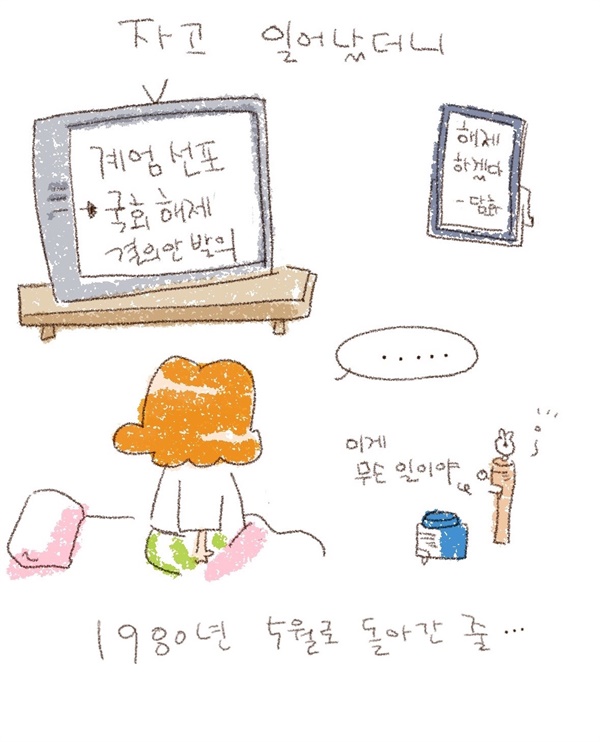 자고 일어났더니
계엄 선포
→ 국회 해제
결의안 발의
해제
하겠다
- 담화
.....
이게
무슨 일이야
1980년 5월로 돌아간 줄...